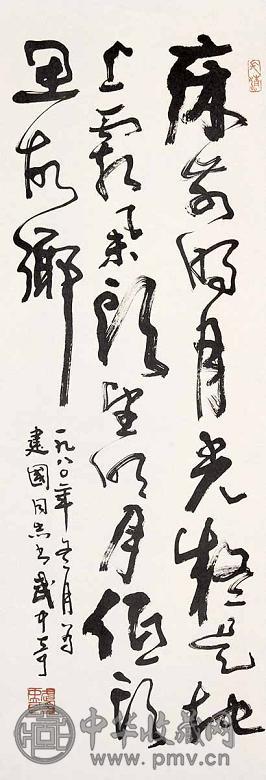 床前明月光疑是地
上霜舉頭望明月低頭
思故鄉
一九八〇年冬月为
建國同志书武中奇
中华收藏网
www.pmv.cn